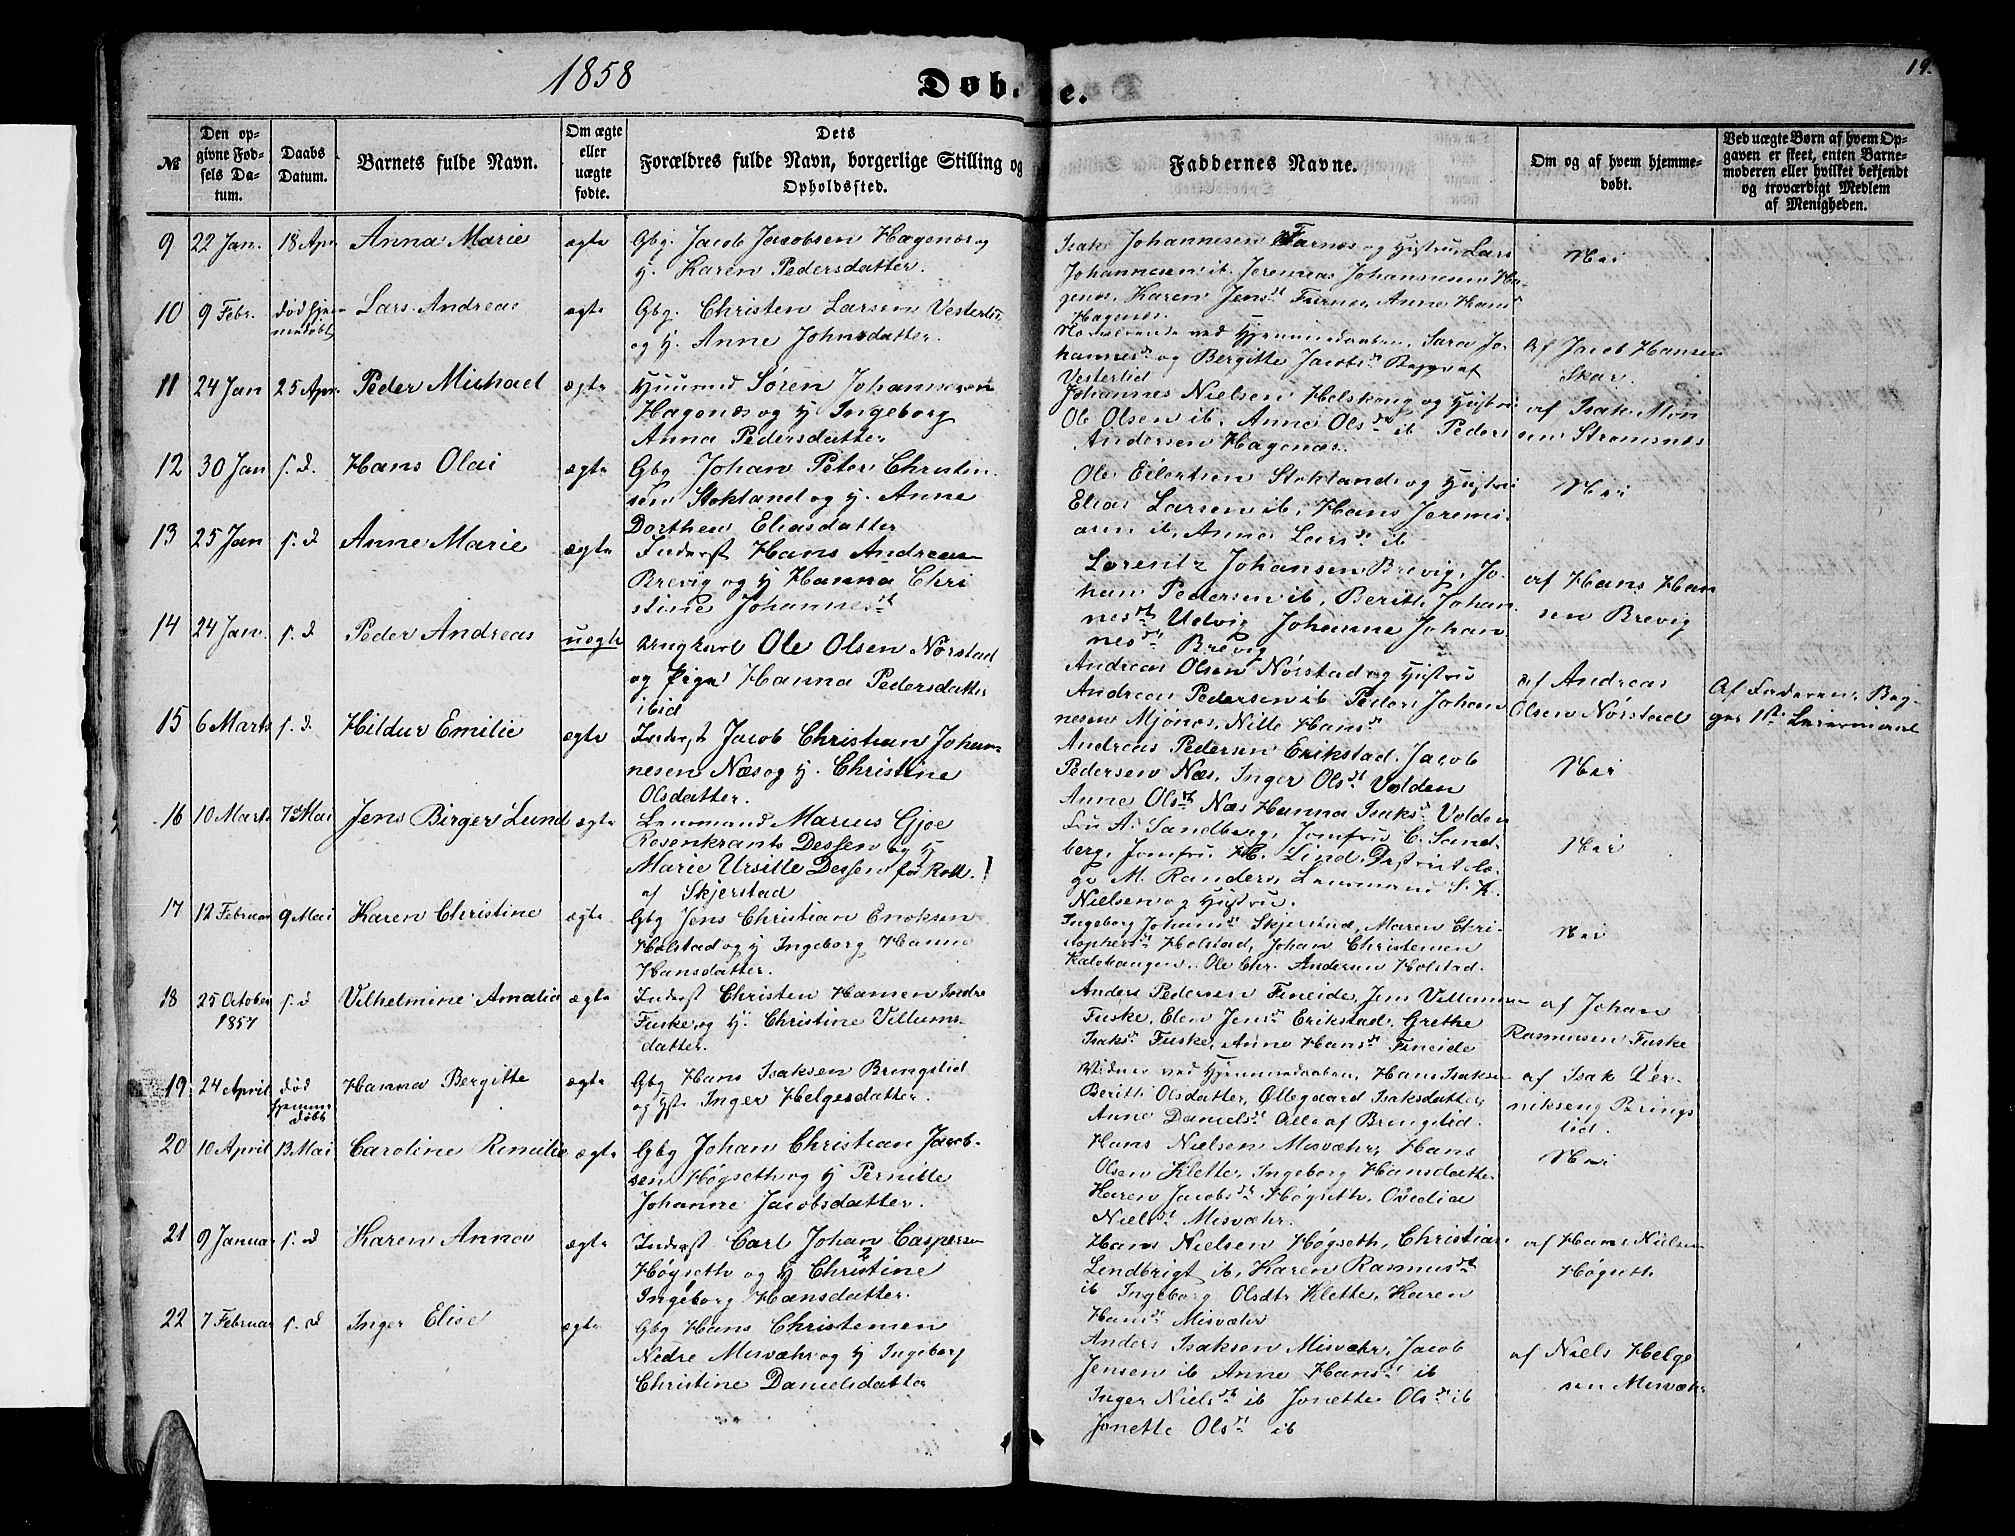 1858
Døbte.
19.
№
Den opgivne Fødsels Datum.
Daabs Datum.
Barnets fulde Navn.
Om ægte eller uægte fødte.
Dets Forældres fulde Navn, borgerlige Stilling og Opholdssted.
Faddernes Navne.
Om og af hvem hjemmedøbt.
Ved uægte Børn af hvem Opgaven er skeet, enten Barnemoderen eller hvilket bekjendt og troværdigt Medlem af Menigheden.
9 22 Jan. 18 Apr Anna Marie ægte Gbg. Jacob Jacobsen Hagenæs og
H. Karen Pedersdatter.
Isak Johannesen Farnes og Hustru Lars
Johannesen ib. Jeremias Johannesen Ha-
genæs, Karen Jens dt Furnes, Anne Hans dt
Hagenæs.
Nei
10 9 Febr. død hjem
medøbt Lars Andreas ægte Gbg. Christen Larsen Vesterlid
og H. Anne Johnsdatter.
Nærværende ved Hjemmedaaben, Sara Jo-
hannes dt og Bergitte Jacobs dt Begge af
Vesterlid
af Jacob Hansen
Skar.
11 24 Jan 25 Apr. Peder Michael ægte Huusmd Søren Johannesen
Hagenæs og H Ingeborg
Anna Pedersdatter
Johannes Nielsen Helskoug og Hustru
Ole Olsen ib. Anne Ols dt ib Peder
Andersen Hagenæs.
af Isak Mon
sen Strømsnes
12 30 Jan s. d. Hans Olai ægte Gbg Johan Peter Christen
sen Stokland og H. Anne
Dorthea Eliasdatter
Ole Eilertsen Stokland og Hustru
Elias Larsen ib, Hans Jeremi-
asen ib, Anna Lars dt ib
Nei
13 25 Jan s. d Anne Marie ægte Inderst Hans Andreas
Brevig og H Hanna Chri
stine Johannes dt
Lorentz Johansen Brevig, Jo-
han Pedersen ib, Berith Johan
nes dt Udvig Johanne Johan
nes dt Brevig
af Hans Han
sen Brevig
14 24 Jan. s. d Peder Andreas uægte Ungkarl Ole Olsen Nørstad
og Pige Hanna Pedersdatter
ibid
Andreas Olsen Nørstad og Hustru
Andreas Pedersen ib Peder Johan
nesen Mjønes, Nille Hans dt
af Andreas
Olsen Nørstad
Af Faderen. Beg-
ges 1ste Leiermaal
15 6 Marts s. d. Hildur Emilie ægte Inderst Jacob Christian Johan-
nesen Næs og H. Christine
Olsdatter.
Andreas Pedersen Erikstad. Jacob
Pedersen Næs, Inger Ols dt Volden
Anne Ols dt Næs Hanna Isaks dt Volden
Nei
16 10 Marts 7de Mai Jens Birger Lund ægte Lensmand Marius Gjøe
Rosenkrants Dessen og H
Marie Ursille Dessen fød Roll.
af Skjerstad
Fru A. Sandberg, Jomfru C. Sand-
berg, Jomfru H. Lind, Distriktslæ-
ge M. Randers, Lensmand S. K.
Nielsen og Hustru.
Nei
17 12 Februar 9 Mai Karen Christine ægte Gbg Jens Christian Enoksen
Holstad og H Ingeborg Hanna
Hansdatter.
Ingeborg Johans dt Skjerstad, Maren Chri-
stophers dt Holstad, Johan Christensen
Kalvhaugen. Ole Chr. Andersen Holstad.
Nei
18 25 October
1857 s. d Vilhelmine Amalia ægte Inderst Christen Hansen Indre
Fuske og H. Christine Villums-
datter.
Anders Pedersen Fineide, Jens Villumsen
Fuske, Elen Jens dt Erikstad, Grethe
Isaks dt Fuske, Anne Hans dt Fineide
af Johan
Rasmusen Fuske
19 24 April død
hjemme
døbt Hanna Bergitte ægte Gbg Hans Isaksen Bringslid
og Hst. Inger Helgesdatter.
Vidner ved Hjemmedaaben, Hans Isaksen
Berith Olsdatter, Ollegaard Isaksdatter
Anne Daniels dt Alle af Bringslid.
af Isak Der-
nikseng Brings
lid.
20 10 April 13 Mai Caroline Remilie ægte Gbg Johan Christian Jacob-
sen Høgseth og H Pernille
Johanne Jacobsdatter.
Hans Nielsen Misvæhr, Hans
Olsen Klette, Ingeborg Hansdatter
Karen Jacobs dt Høgseth, Ovedia
Niels dt Misvæhr.
Nei
21 9 Januar s. d Karen Anna ægte Inderst Carl Johan Caspersen
Høgseth og H 2 Christine
1 Ingeborg Hansdatter.
Hans Nielsen Høgseth, Christian
Lendbrigt ib, Karen Rasmus dt
ib Ingeborg Olsdtr Klette, Karen
Hans dt Misvæhr
af Hans Nielsen
Høgseth
22 7 Februar s. d Inger Elise ægte Gbg Hans Christensen
Nedre Misvæhr og H Ingeborg
Christine Danielsdatter
Anders Isaksen Misvæhr, Jacob
Jensen ib Anne Hans dt ib
Inger Niels dt ib Jonette Ols dt ib
Jonette Ols dt ib
af Niels Helge
sen Misvæhr